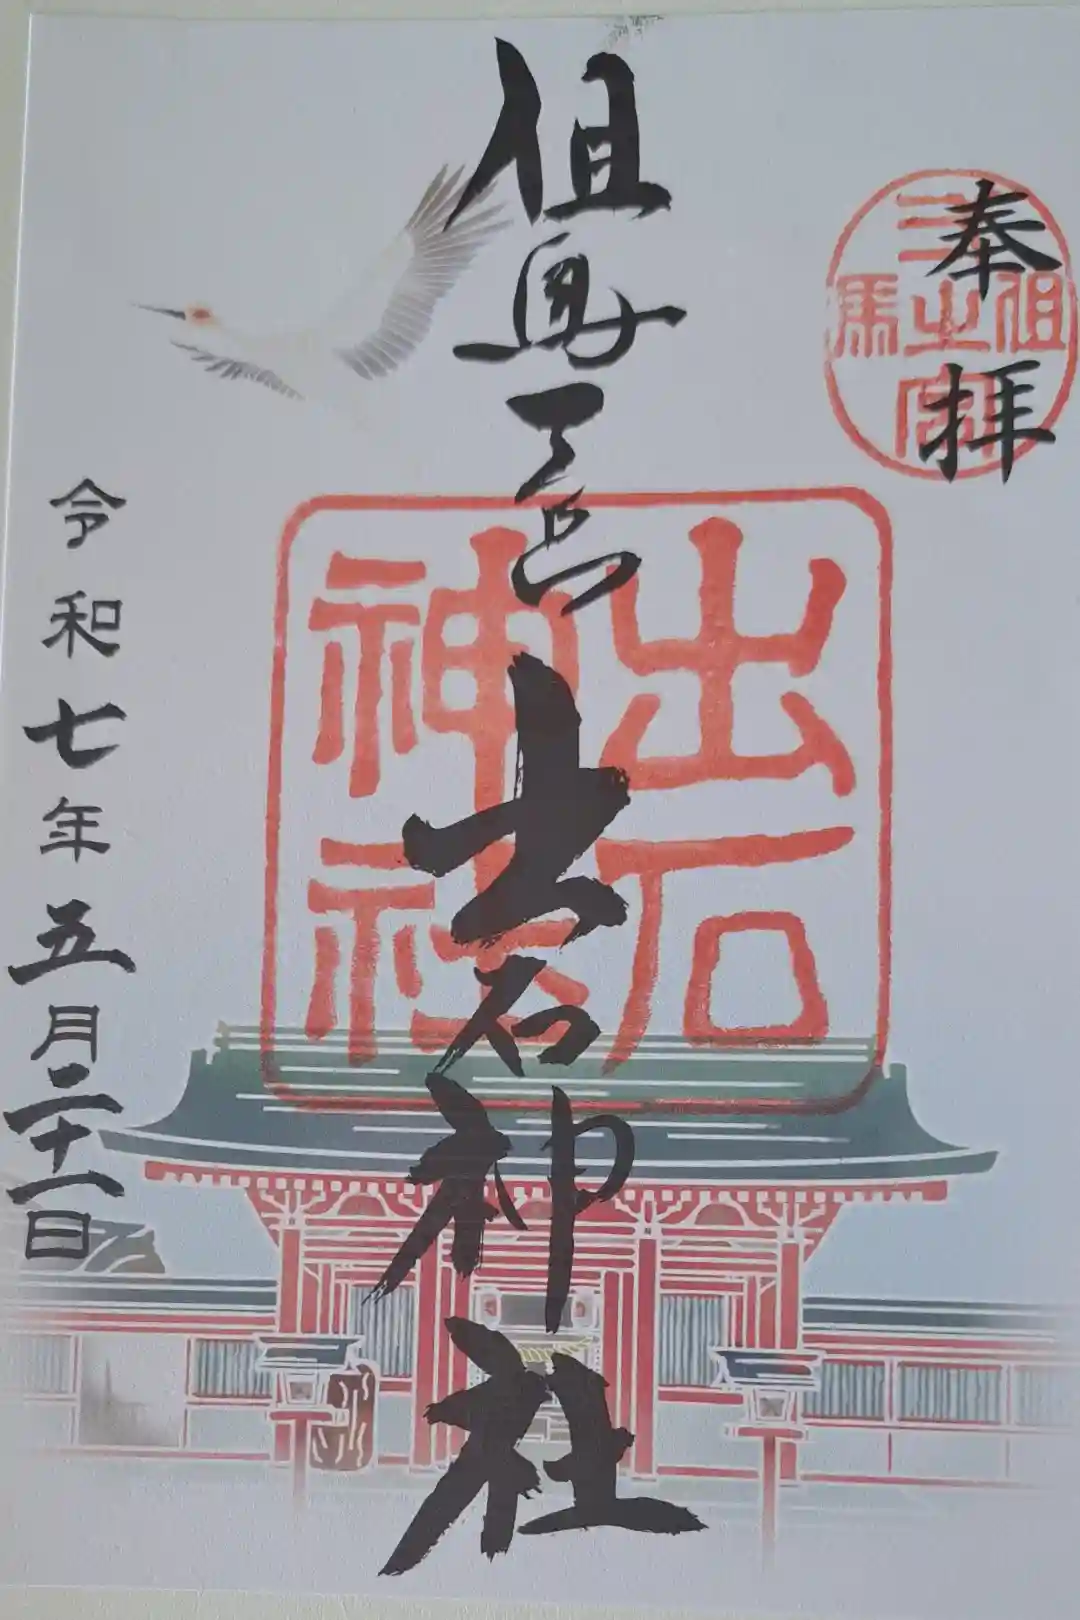 奉拝
但馬一之宮
但馬一宮 出石神社
出石
神社
令和七年五月二十一日